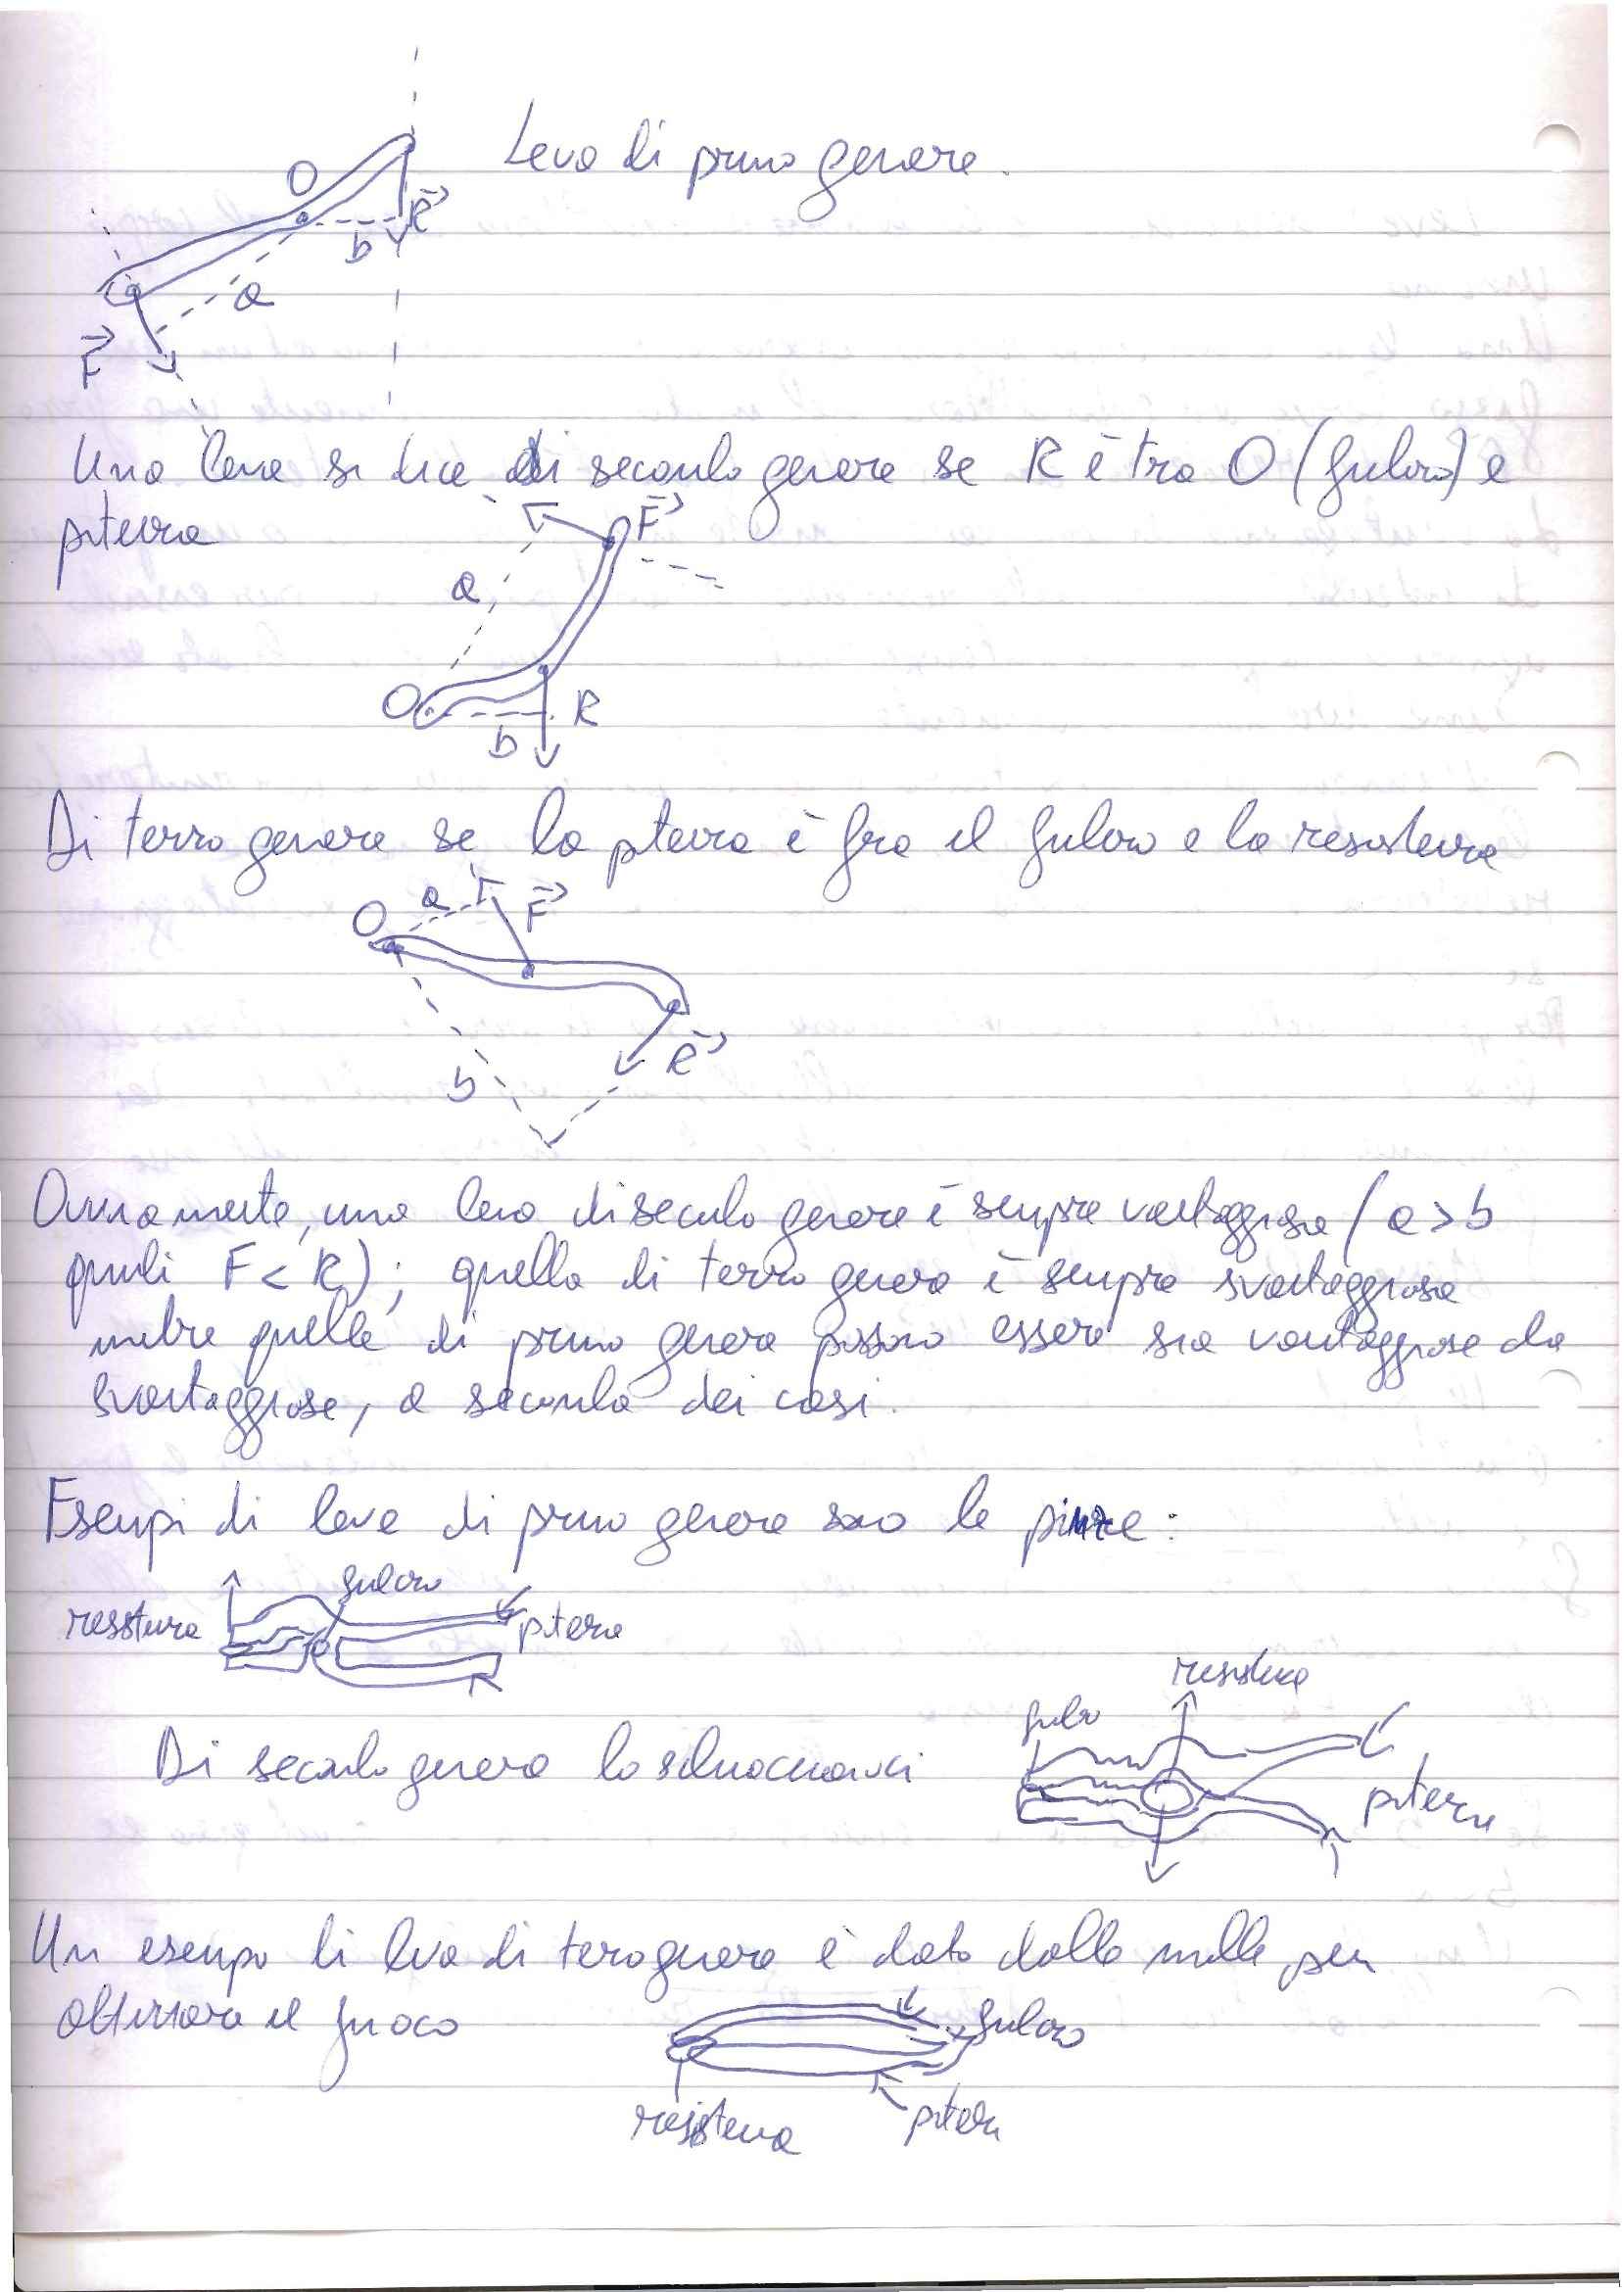 Leva di primo genere.
O
R
b
a
F
Una leva si dice di secondo genere se R è tra O (fulcro) e
potenza
F
a
O
R
b
Di terzo genere se la potenza è fra il fulcro e la resistenza
O
a
F
R
b
Ovviamente, una leva di secondo genere è sempre vantaggiosa (a > b
quindi F < R); quella di terzo genere è sempre svantaggiosa
mentre quelle di primo genere possono essere sia vantaggiose che
svantaggiose, a seconda dei casi.
Esempi di leve di primo genere sono le pinze:
fulcro
resistenza
potenza
resistenza
fulcro
Di secondo genere lo schiaccianoci
potenza
Un esempio di leva di terzo genere è dato dalle molle per
attizzare il fuoco
fulcro
resistenza
potenza